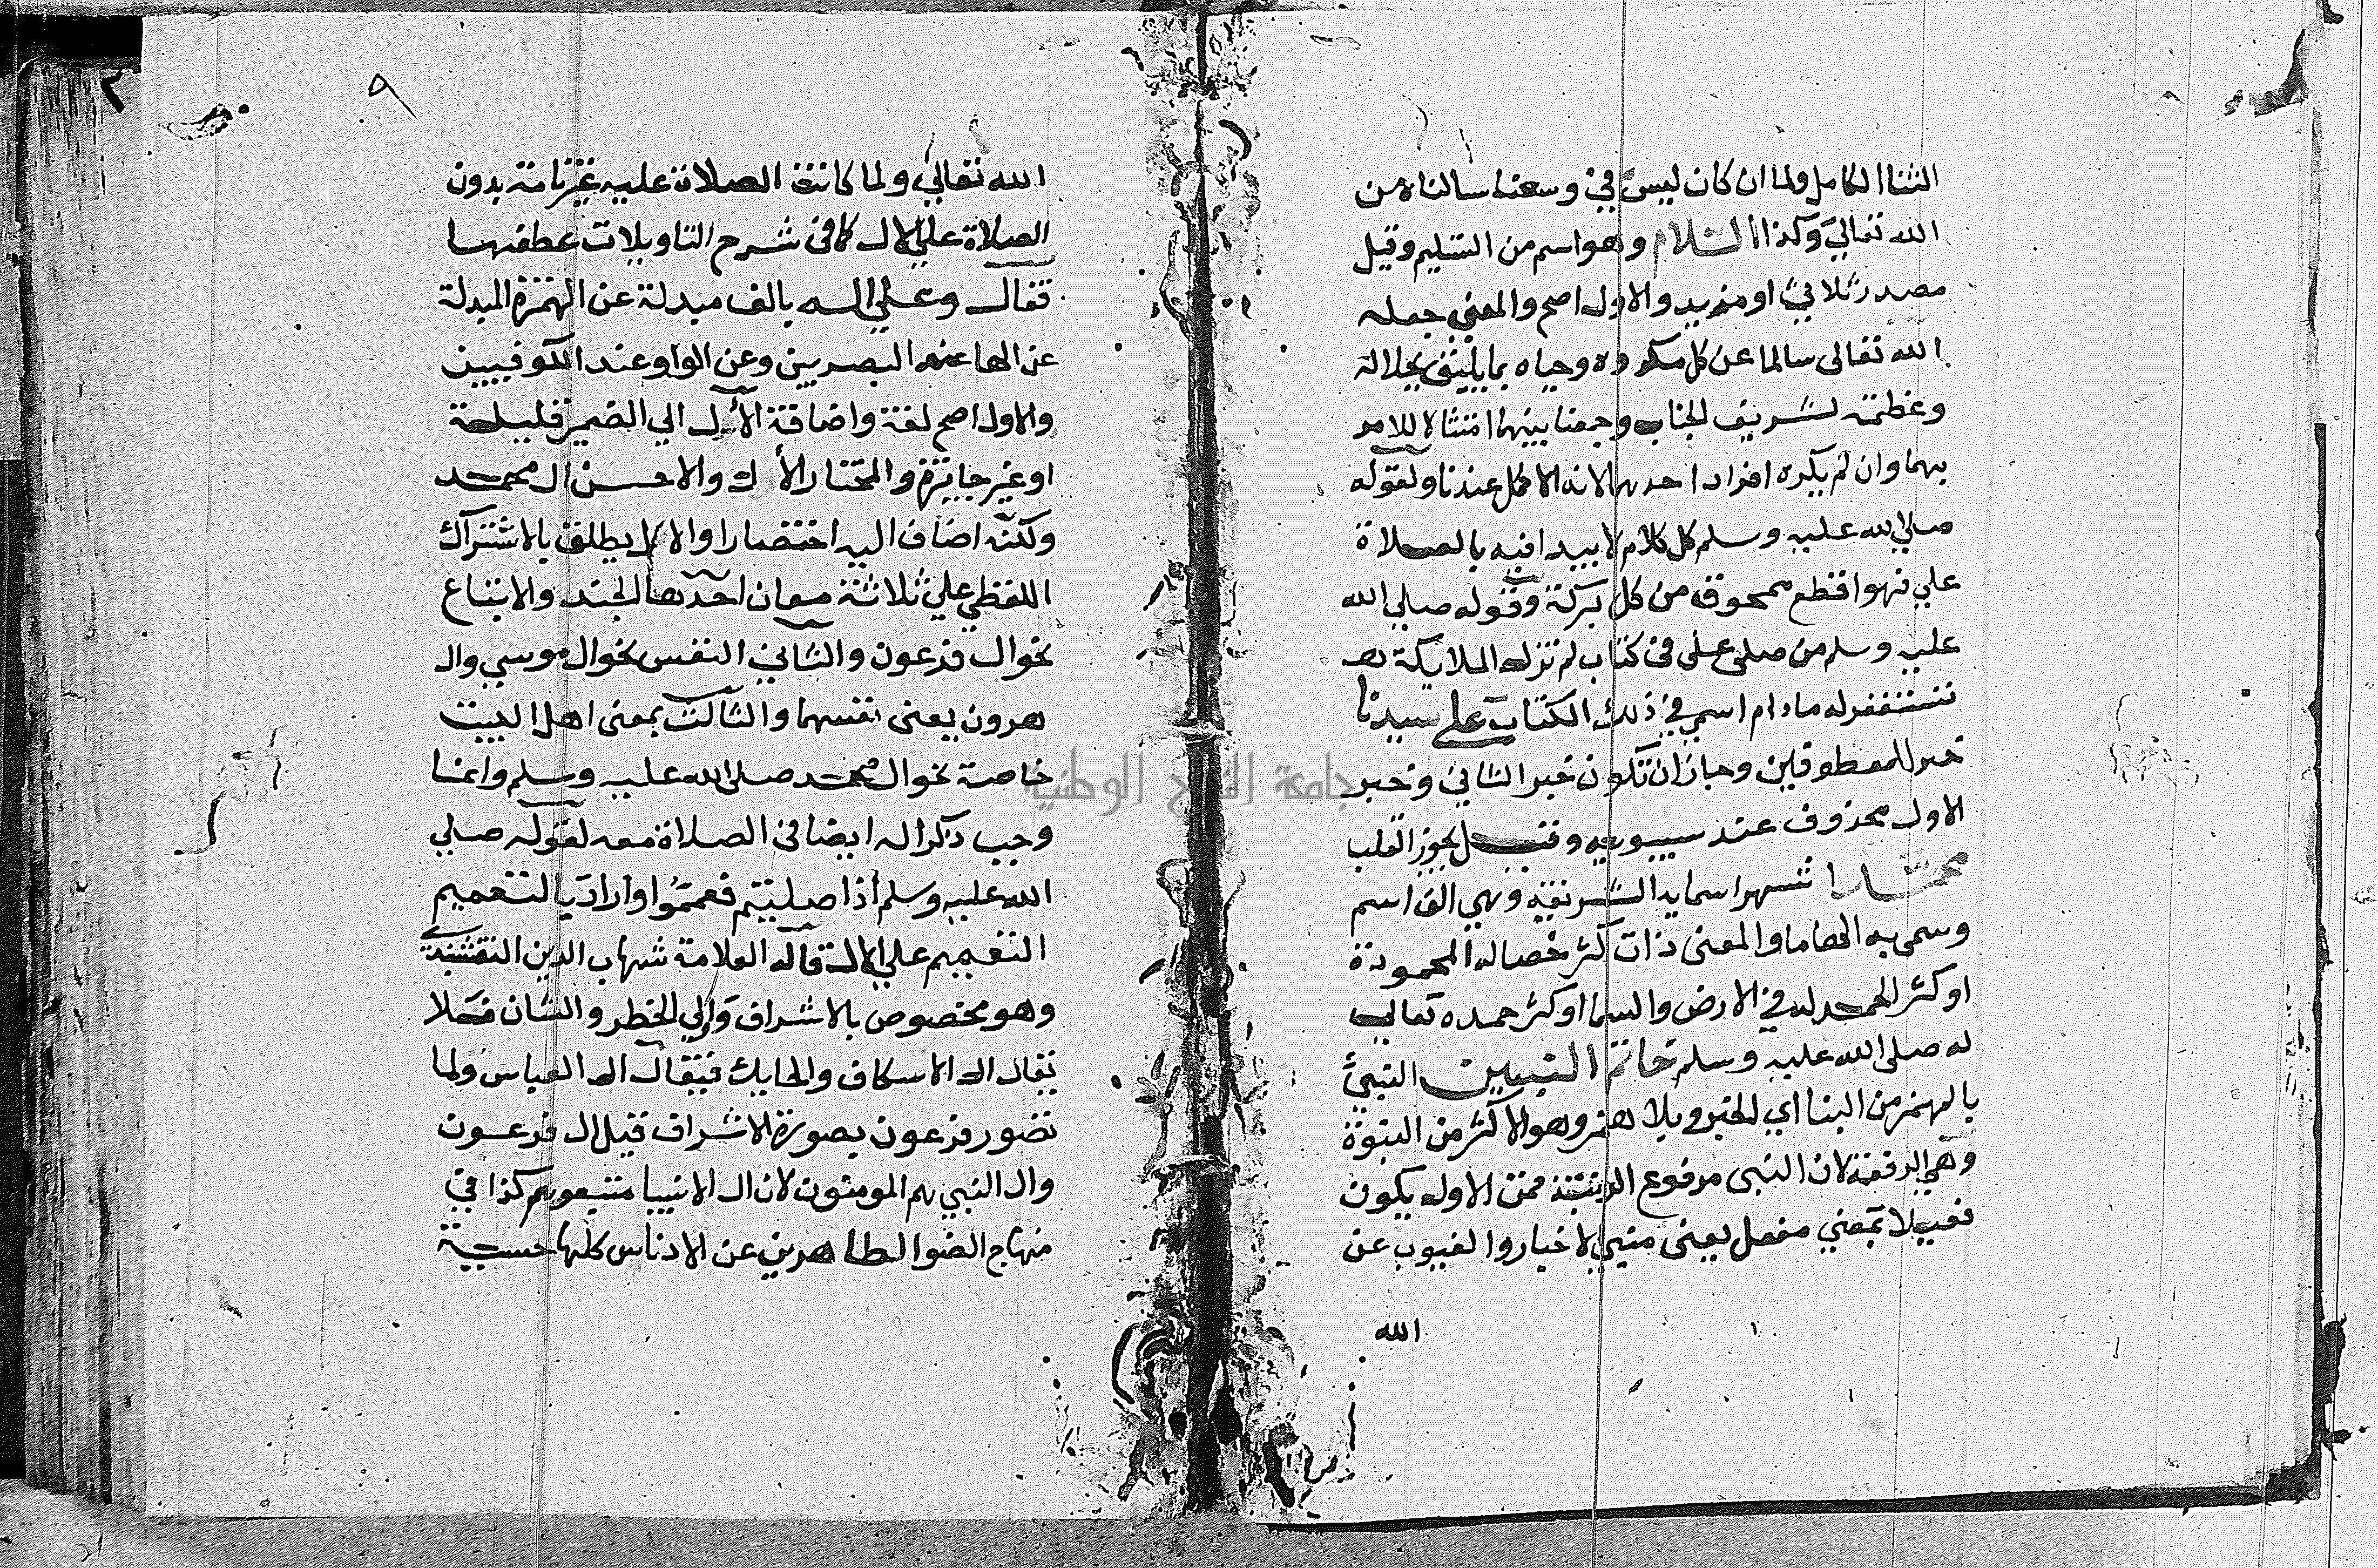 الثنا الكامل ولما ان كان ليس في وسعنا سالناه من
الله تعالى وكذا السلام وهو اسم من التسليم وقيل
مصدر ثلاثي او مزيد والاول اصح والمعنى جعله
الله تعالى سالما عن كل مكروه وحياه بما يليق بجلالة
وعظمته لشريف الجناب وجمعنا بينهما امتثالا للامر
بهما وان لم يكره افراد احدهما لانه الاكمل عندنا ولقوله
صلى الله عليه وسلم كل كلام لا يبدا فيه بالصلاة
علي فهو اقطع ممحوق من كل بركة وقوله صلى الله
عليه وسلم من صلى على في كتاب لم تزل الملايكة
تستغفر له مادام اسمي في ذلك الكتاب على سيدنا
خبر للمعطوفين وجاز ان تكون خبر الثاني وخبر
الاول محذوف عند سيبويه وقيل يجوز القلب
محمد اشهر اسمايه الشريفة وهي الف اسم
وسمى به والمعنى ذات كثر خصاله المحمودة
او كثر الحمد له في الارض والسما او كثر حمده تعالى
له صلى الله عليه وسلم خاتم النبيين النبئ
بالهمز من النبا اي الخبر وبلا همز وهو الاكثر من النبوة
وهي الرفعة لان النبى مرفوع الرتبة فمن الاول يكون
فعيلا بمعنى مفعل يعنى منبي لاخبار والغيوب عن
الله
٩
الله تعالى ولما كانت الصلاة عليه غير تامة بدون
الصلاة على الال كما فى شرح التاويلات عطفها
فقال وعلى اله بالف مبدلة عن الهمزة المبدلة
عن الها عند البصريين وعن الواو عند الكوفيين
والاول اصح لغة واضافة الال الي الضمير قليلة
او غير جايزة والمختار الاول والاحسن ال محمد
ولكنه اضاف اليه اختصارا والال يطلق بالاشتراك
اللفظي على ثلاثة معان احدها الجند والاتباع
نحو ال فرعون والثاني النفس نحو ال موسي وال
هرون يعنى نفسهما والثالث بمعنى اهل البيت
خاصة نحو ال محمد صلى الله عليه وسلم وانما
وجب ذكر اله ايضا فى الصلاة معه لقوله صلى
الله عليه وسلم اذا صليتم فعمموا واراد بالتعميم
التعميم على الال قاله العلامة شهاب الدين النقشبندي
وهو مخصوص بالاشراف واولي الخطر والشان فلا
يقال ال الاسكاف والحايك فيقال ال العباس ولما
تصور فرعون بصورة الاشراف قيل ال فرعون
وال النبي هم المومنون لان ال الانبيا متبعوهم كذا في
منهاج الضوا الطاهرين عن الادناس كلها حسية
جامعة النجاح الوطنية